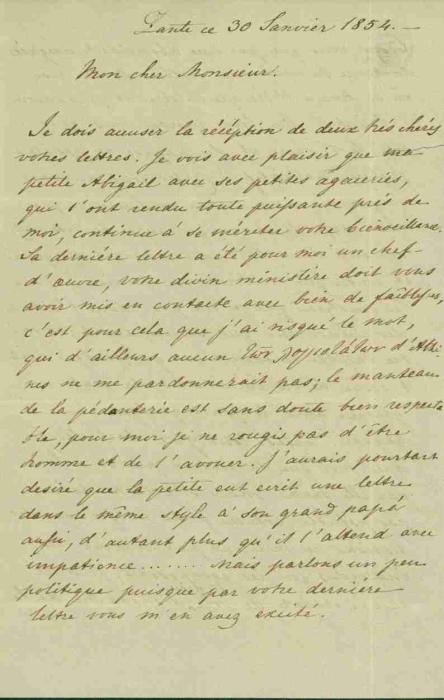 Zante ce 30 Janvier 1854. —
Mon cher Monsieur.
Je dois accuser la récéption de deux très chérés
votres lettres. Je vois avec plaisir que ma
petite Abigail avec ses petites agaceries,
qui l'ont rendu toute puissante près de
moi, continue à se mériter votre bienveillance.
Sa dernière lettre a été pour moi un chef-
d'œuvre, votre divin ministère doit vous
avoir mis en contacte avec bien de faiblesses,
c'est pour cela que j'ai risqué le mot,
qui d'ailleurs aucun τῶν d'Athè
nes ne me pardonnerait pas; le manteau
de la pédanterie est sans doute bien respecta
ble, pour moi je ne rougis pas d'être
homme et de l'avouer. J'aurais pourtant
desiré que la petite eut ecrit une lettre
dans le même style à son grand papà
aussi, d'autant plus qu'il l'attend avec
impatience ...... Mais parlons un peu
politique puisque par votre dernière
lettre vous m'en avez excité.